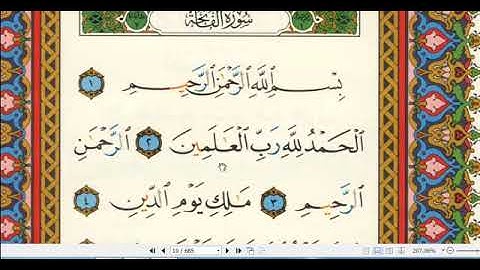 سُورَةُ الفَاتِحَةِ
بِسْمِ ٱللَّهِ ٱلرَّحْمَٰنِ ٱلرَّحِيمِ ١
ٱلْحَمْدُ لِلَّهِ رَبِّ ٱلْعَٰلَمِينَ ٢ ٱلرَّحْمَٰنِ
ٱلرَّحِيمِ ٣ مَٰلِكِ يَوْمِ ٱلدِّينِ ٤
19 / 665
267,86%